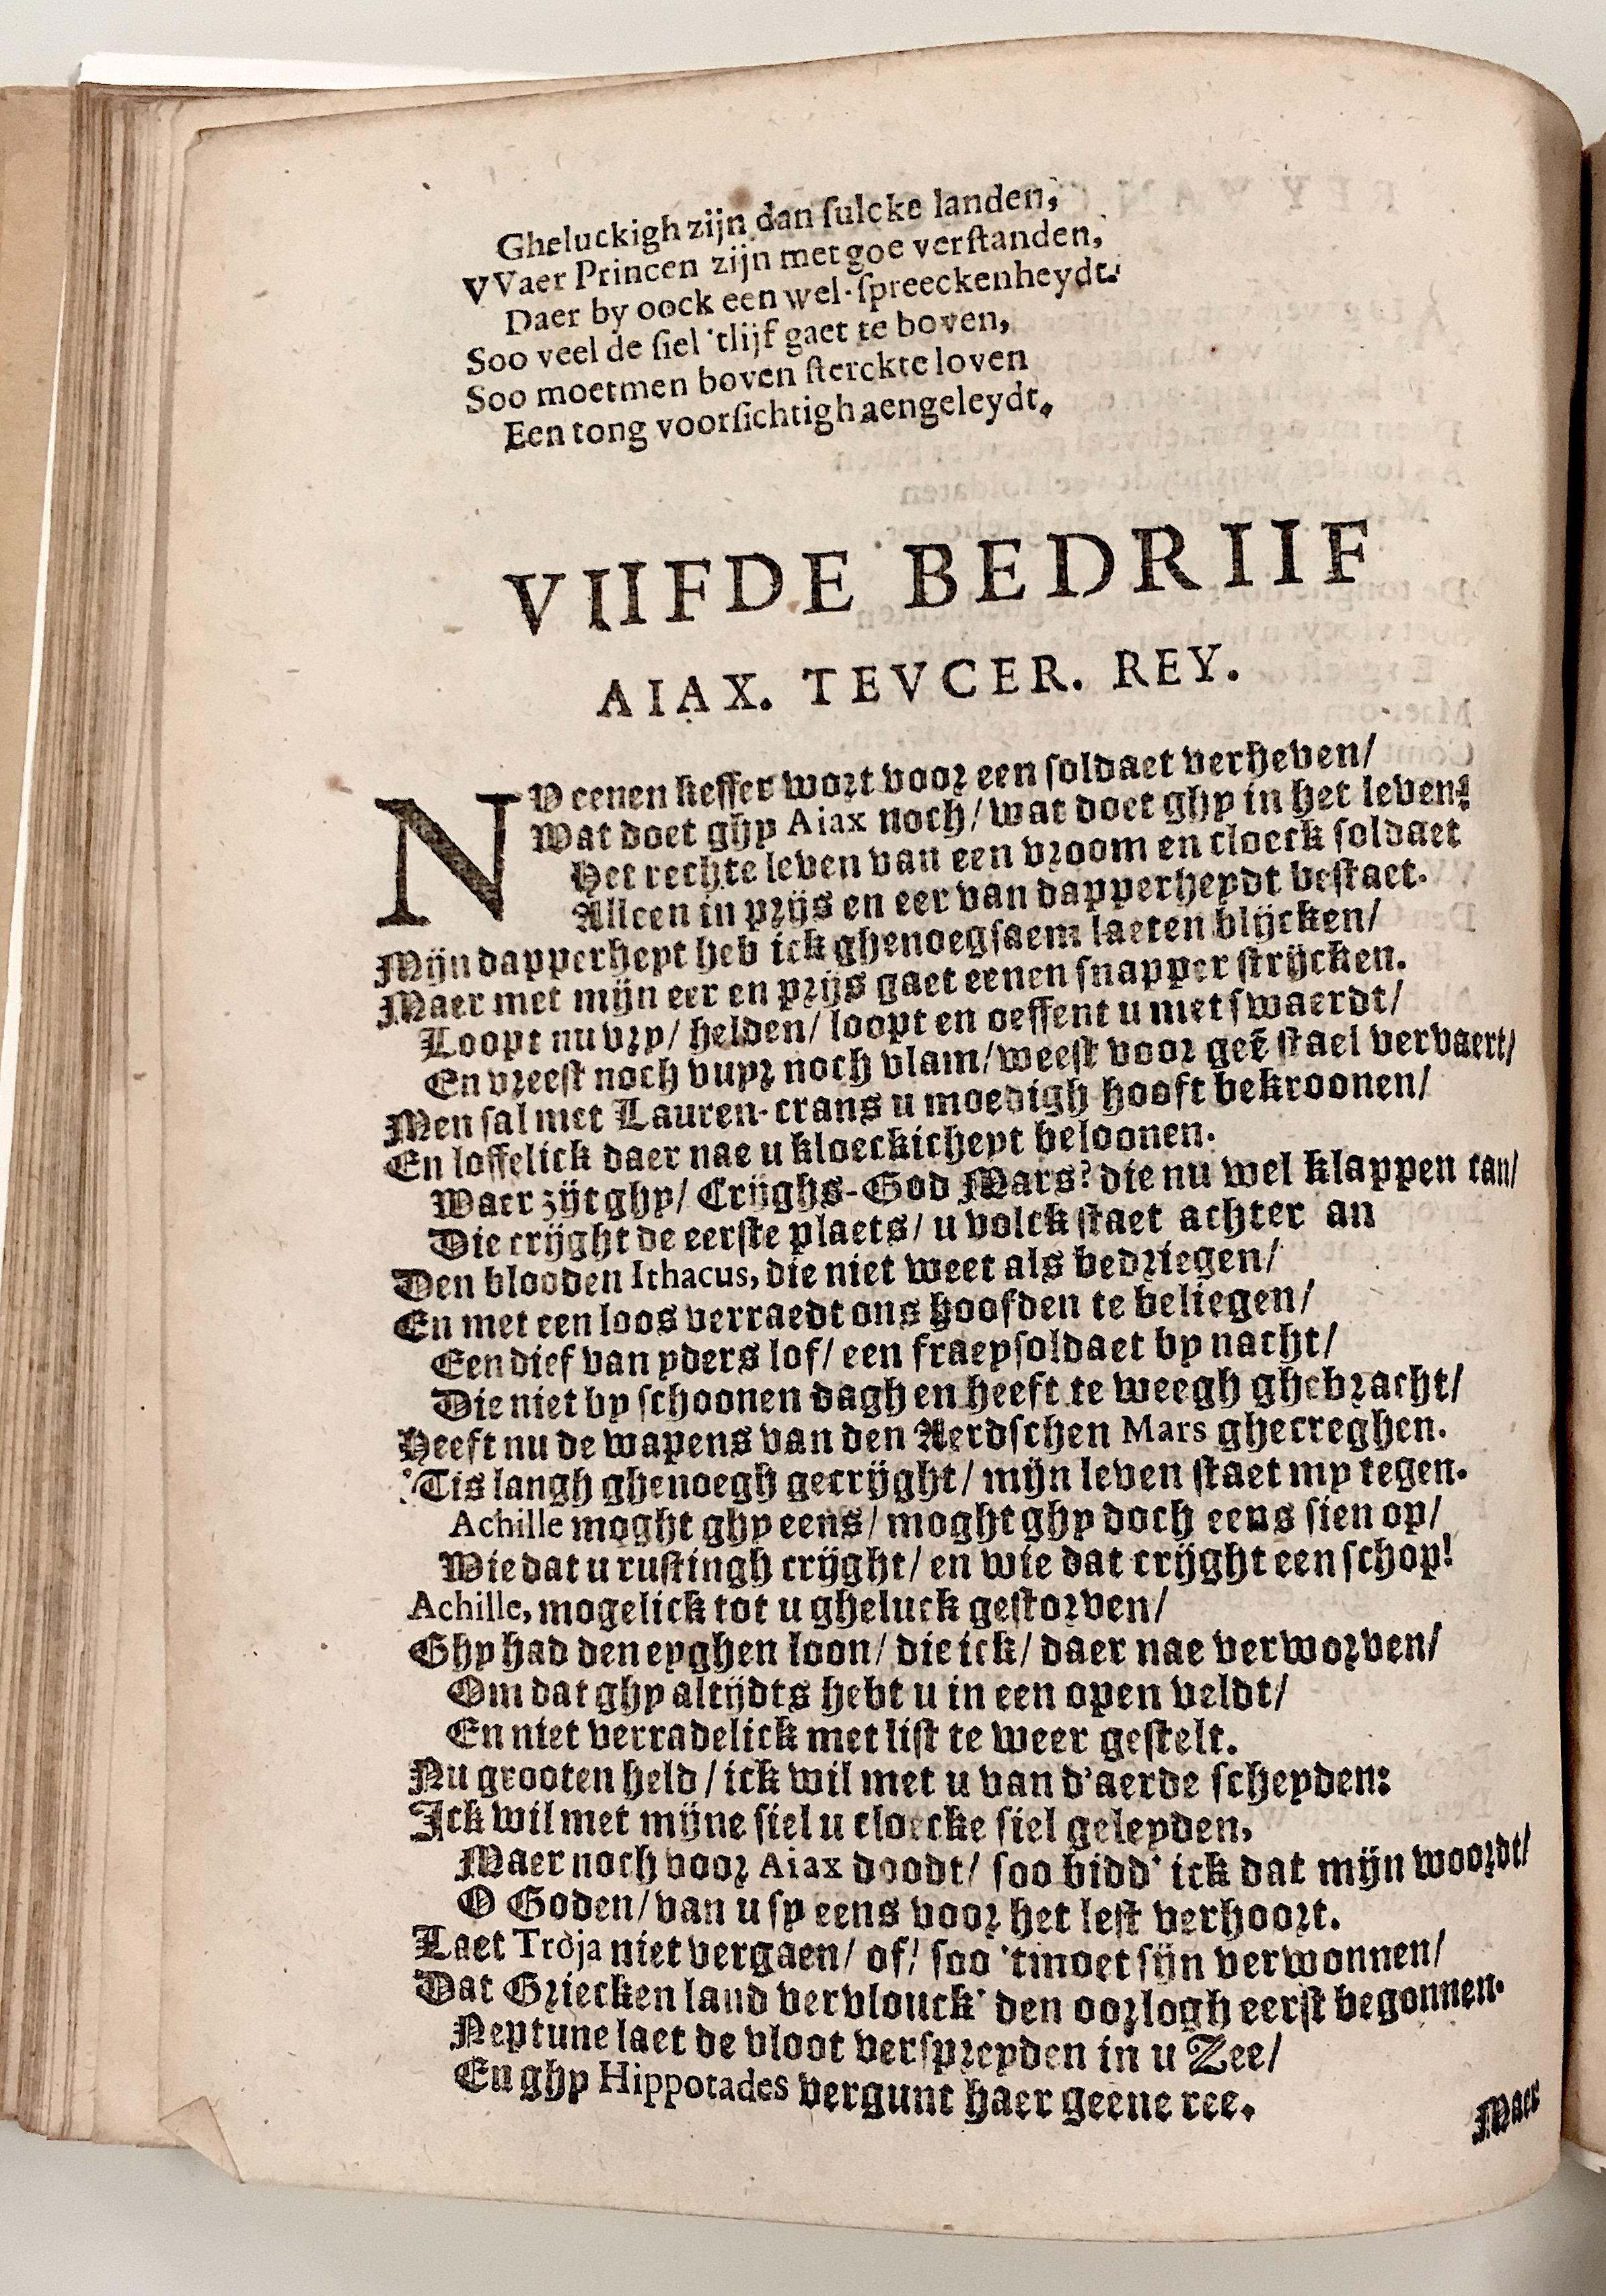 Gheluckigh zijn dan sulcke landen,
VVaer Princen zijn met goe verstanden,
Daer by oock een wel-spreeckenheydt.
Soo veel de siel 'tlijf gaet te boven,
Soo moetmen boven sterckte loven
Een tong voorsichtigh aengeleydt.
VIIFDE BEDRIIF
AIAX. TEVCER. REY.
NU eenen keffer wort voor een soldaet verheven/
Wat doet ghy Aiax noch/ wat doet ghy in het leven?
Het rechte leven van een vroom en cloeck soldaet
Alleen in prijs en eer van dapperheydt bestaet.
Mijn dapperheyt heb ick ghenoegsaem laeten blijcken/
Maer met mijn eer en prijs gaet eenen snapper strijcken.
Loopt nu vry/ helden/ loopt en oeffent u met swaerdt/
En vreest noch vuyr noch vlam/ weest voor geē stael vervaert/
Men sal met Lauren-crans u moedigh hooft bekroonen/
En loffelick daer nae u kloeckicheyt beloonen.
Waer zijt ghy/ Crijghs-God Mars? die nu wel klappen can/
Die crijght de eerste plaets/ u volck staet achter an
Den blooden Ithacus, die niet weet als bedriegen/
En met een loos verraedt ons hoofden te beliegen/
Een dief van yders lof/ een fraey soldaet by nacht/
Die niet by schoonen dagh en heeft te weegh ghebracht/
Heeft nu de wapens van den Aerdschen Mars ghecreghen.
'Tis langh ghenoegh gecrijght/ mijn leven staet my tegen.
Achille moght ghy eens/ moght ghy doch eens sien op/
Wie dat u rustingh crijght/ en wie dat crijght een schop!
Achille, mogelick tot u gheluck gestorven/
Ghy had den eyghen loon/ die ick/ daer nae verworven/
Om dat ghy altijdts hebt u in een open veldt/
En niet verradelick met list te weer gestelt.
Nu grooten held/ ick wil met u van d'aerde scheyden:
Ick wil met mijne siel u cloecke siel geleyden,
Maer noch voor Aiax doodt/ soo bidd' ick dat mijn woordt/
O Goden/ van u sy eens voor het lest verhoort.
Laet Troja niet vergaen/ of/ soo 'tmoet sijn verwonnen/
Dat Griecken land vervlouck' den oorlogh eerst begonnen.
Neptune laet de vloot verspreyden in u Zee/
En ghy Hippotades vergunt haer geene ree.
Maer